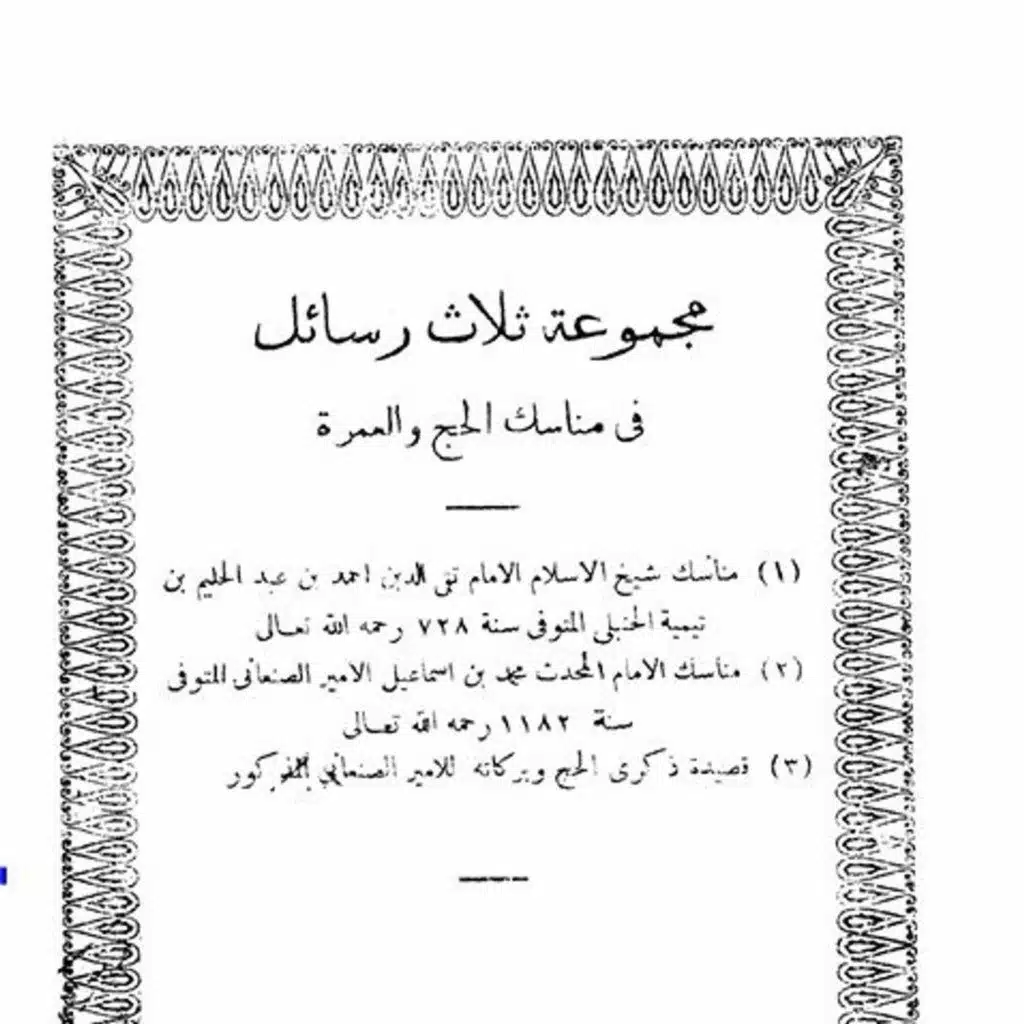 مجموعة ثلاث رسائل
فى مناسك الحج والعمرة
(١) مناسك شيخ الاسلام الامام تقى الدين احمد بن عبد الحليم بن
تيمية الحنبلى المتوفى سنة ٧٢٨ رحمه الله تعالى
(٢) مناسك الامام المحدث محمد بن اسماعيل الامير الصنعانى المتوفى
سنة ١١٨٢ رحمه الله تعالى
(٣) قصيدة ذكرى الحج وبركاته للامير الصنعاني المذكور